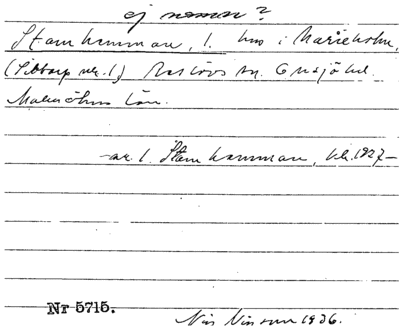 ej namn?
Stamhamman, l. hus i Marieholm,
(Sibbarp nr. 1) Raslövs sn. Onsjö hd.
Malmöhus län.
nr. 1. Stamhamman, 1927-
Nr 5715.
Nils Nilsson 1936.